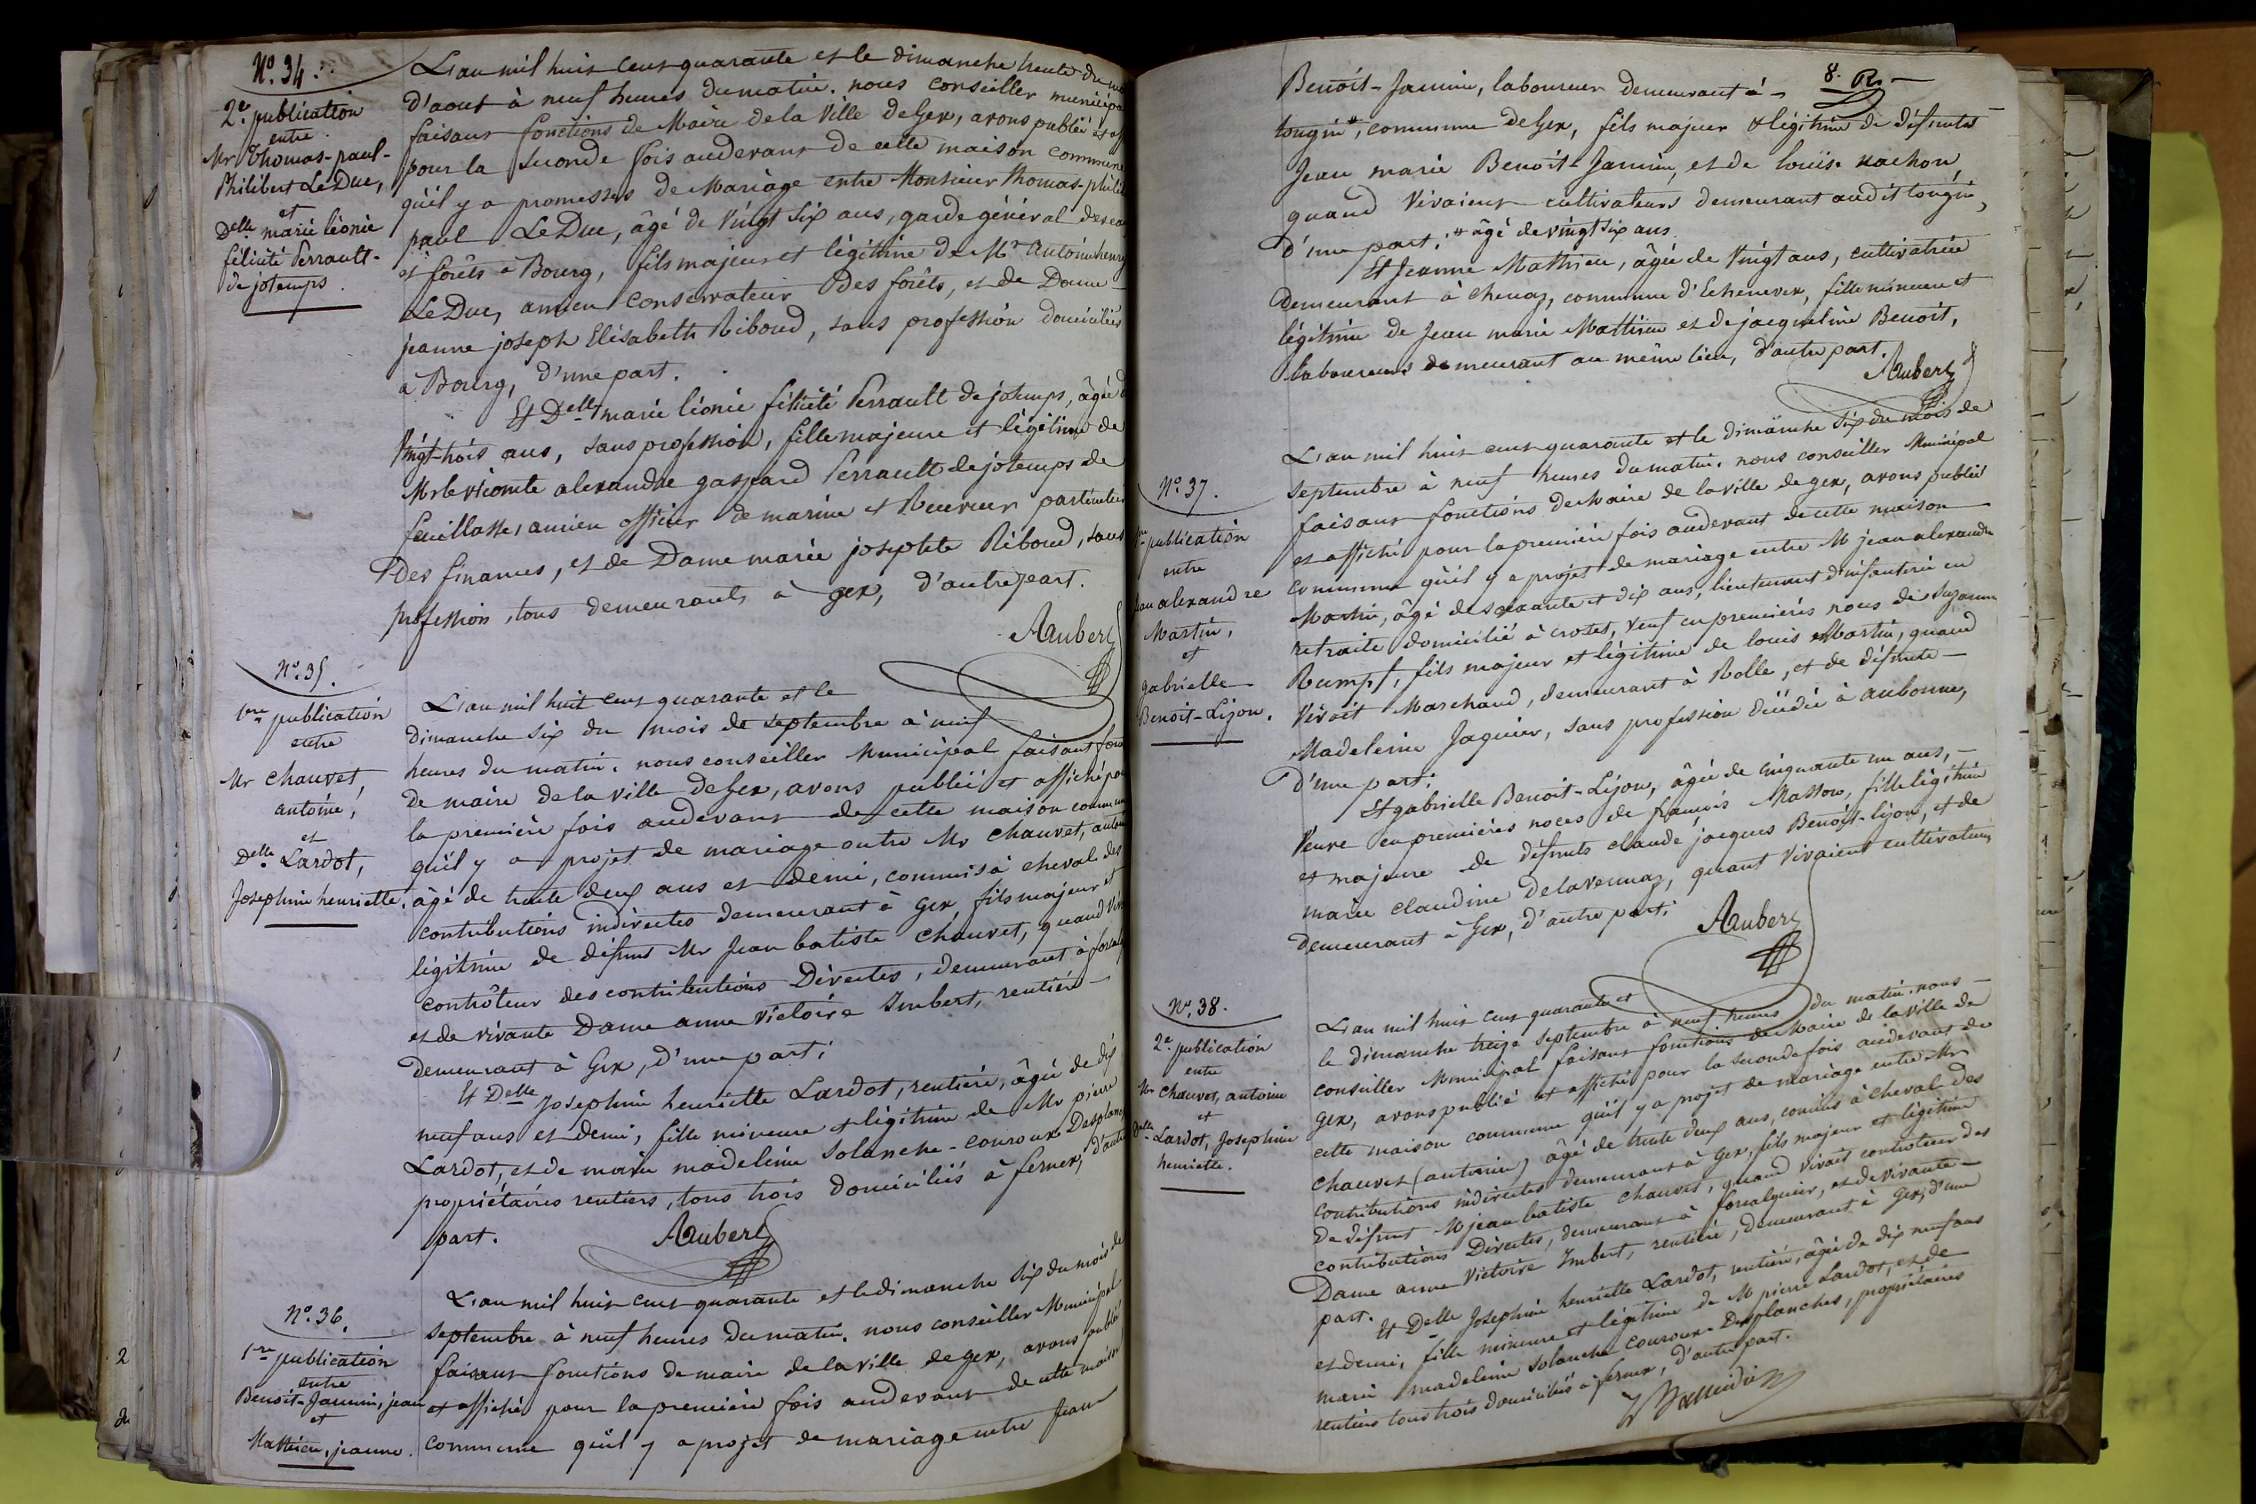 N° 34.
2e publication
entre
Mr Thomas-paul-
Philibert Le Duc,
et
Delle marie léonie
félicité Perrault-
de jotemps.
L'an mil huit cent quarante et le dimanche trente du
d'aout à neuf heures du matin. nous conseiller municipal
faisant fonctions de Maire de la Ville de Gex, avons publié et
pour la seconde fois audevant de cette maison commune
qu'il y a promesses de Mariage entre Monsieur Thomas-philibert
paul Le Duc, âgé de vingt six ans, garde général des eaux
et forêts à Bourg, fils majeur et légitime de Mr antoine henry
Le Duc, ancien Conservateur des forêts, et de Dame
jeanne joseph Elisabeth Riboud, sans profession domiciliés
à Bourg, d'une part.
Et Delle marie léonie félicité Perrault de jotemps, âgée de
Vingt-trois ans, sans profession, fille majeure et légitime de
Mr le vicomte alexandre gaspard Perrault de jotemps de
feuillasse, ancien officier de marine et Receveur particulier
des finances, et de Dame marie josephte Riboud, sans
profession, tous demeurants à gex, d'autre part.
Aubert
N° 35.
1ere publication
entre
Mr Chauvet,
antoine,
et
Delle Lardot,
Josephine henriette.
L'an mil huit cent quarante et le
Dimanche six du mois de septembre à neuf
heures du matin. nous conseiller Municipal faisant
de maire de la ville de Gex, avons publié et affiché pour
la première fois audevant de cette maison commune
qu'il y a projet de mariage entre Mr Chauvet, antoine
âgé de trente deux ans et demi, commis à cheval des
contributions indirectes demeurant à Gex fils majeur et
légitime de défunt Mr Jean batiste Chauvet, quand
contrôleur des contributions Directes, demeurant à
et de vivante Dame anne Victoire Imbert, rentière
demeurant à Gex, d'une part;
Et Delle Josephine henriette Lardot, rentière, âgée de dix
neuf ans et demi, fille mineure et légitime de Mr pierre
Lardot, et de marie madeleine Solanche-Couroux Desplanches
propriétaires rentiers, tous trois domiciliés à fernex, d'autre
part.
Aubert
N° 36.
1re publication
entre
Benoit-Jannin, jean
et
Mathieu, jeanne.
L'an mil huit cent quarante et le dimanche six du mois de
septembre à neuf heures du matin. nous conseiller Municipal
faisant fonctions de maire de la ville de gex, avons publié
et affiché pour la première fois audevant de cette maison
commune qu'il y a projet de mariage entre Jean
8. R.
Benoit-Jannin, laboureur demeurant à
tougin*, commune de Gex, fils majeur & légitime de défunts
Jean marie Benoit-Jannin, et de louise nachon,
quand vivaient cultivateurs demeurant audit tougin,
d'une part; * âgé de vingt six ans.
Et Jeanne Mathieu, âgée de Vingt ans, cultivatrice
demeurant à chenaz, commune d'Echenevex, fille mineure et
légitime de Jean marie Mathieu et de jacqueline Benoit,
laboureurs demeurant au même lieu, d'autre part.
Aubert
N° 37.
1re publication
entre
Jean alexandre
Martin,
et
gabrielle
Benoit-Lijon.
L'an mil huit cent quarante et le dimanche six du mois de
septembre à neuf heures du matin. nous conseiller Municipal
faisant fonctions de Maire de la ville de gex, avons publié
et affiché pour la première fois audevant de cette maison
commune qu'il y a projet de mariage entre Mr jean alexandre
Martin, âgé de soixante et dix ans, lieutenant d'infanterie en
retraite domicilié à crozet, veuf en premières noces de Suzanne
Rumpf, fils majeur et légitime de louis Martin, quand
vivait Marchand, demeurant à Rolle, et de défunte
Madeleine Jaquier, sans profession décédée à aubonne,
d'une part;
Et gabrielle Benoit-Lijon, âgée de cinquante un ans,
Veuve en premières noces de françois Masson, fille légitime
et majeure de défunts claude jacques Benoit-lijon, et de
marie claudine Delavennaz, quant vivaient cultivateurs
demeurant à Gex, d'autre part;
Aubert
N° 38.
2e publication
entre
Mr Chauvet, antoine
et
Delle Lardot, Josephine
henriette.
L'an mil huit cent quarante et
le dimanche treize septembre à neuf heures du matin. nous
conseiller Municipal faisant fonctions de Maire de la ville de
Gex, avons publié et affiché pour la seconde fois audevant de
cette maison commune qu'il y a projet de mariage entre Mr
Chauvet (antoine) âgé de trente deux ans, commis à cheval des
contributions indirectes demeurant à Gex, fils majeur et légitime
de défunt M jean batiste Chauvet, quand vivait controleur des
contributions Directes, demeurant à forcalquier, et de vivante
Dame anne Victoire Imbert, rentière, demeurant à Gex, d'une
part.
Et Delle Josephine henriette Lardot, rentière, âgée de dix neuf ans
et demi, fille mineure et légitime de M pierre Lardot, et de
marie madeleine Solanche Couroux-Desplanches, propriétaires
rentiers tous trois domiciliés à fernex, d'autre part.